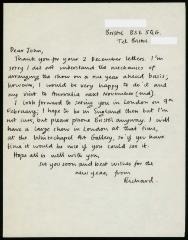 Bristol BS8 5QG.
Tel Bristol
Dear John,
Thank you for your 2 December letters. I'm
sorry I did not understand the mechanics of
arranging the show on a one year ahead basis;
however, I would be very happy to do it and
my visit to Australia next November (end).
I look forward to seeing you in London on 9th
February; I hope to be in England then but I'm
not sure, but please phone Bristol anyway. I will
have a large show in London at that time,
at the Whitechapel Art Gallery, so if you have
time it would be nice if you could see it.
Hope all is well with you,
See you soon and best wishes for the
new year, from
Richard.